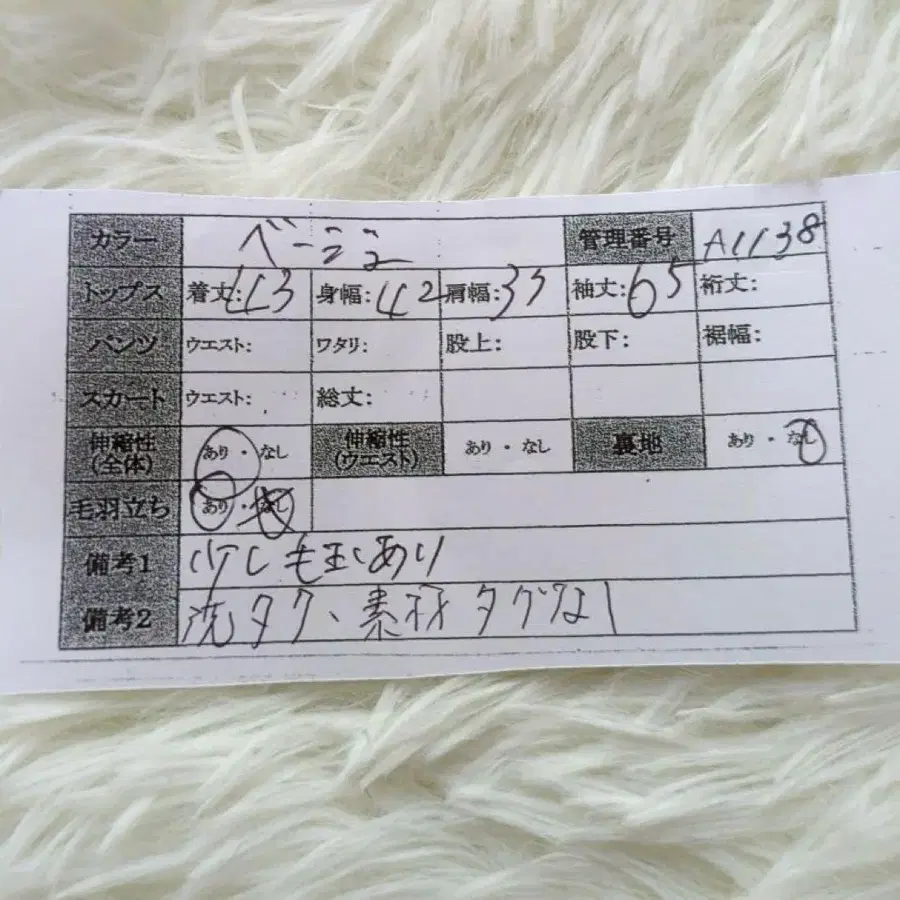 カラー ベージュ 管理番号 A1138
トップス 着丈:43 身幅:42 肩幅:33 袖丈:65 裄丈:
パンツ ウエスト: ワタリ: 股上: 股下: 裾幅:
スカート ウエスト: 総丈:
伸縮性(全体) あり・なし 伸縮性(ウエスト) あり・なし 裏地 あり・なし
毛羽立ち あり・なし
備考1 少し毛玉あり
備考2 洗タグ、素材タグなし